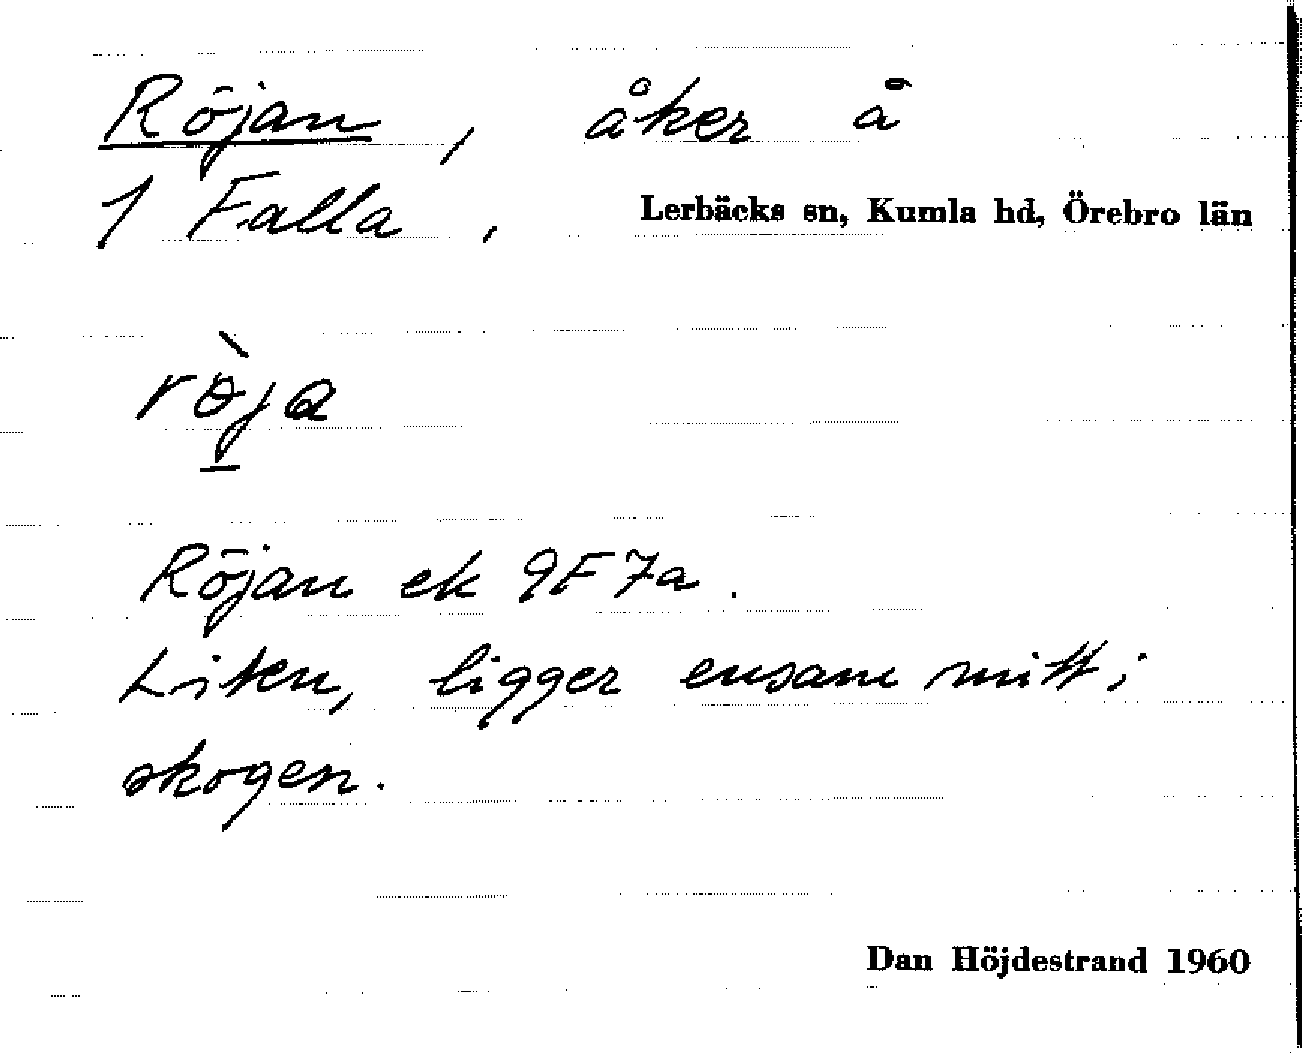 Röjan, åker å
1 Falla, Lerbäcks sn, Kumla hd, Örebro län
rø̀ja
Röjan ek 9F7a.
Liten, ligger ensam mitt i
skogen.
Dan Höjdestrand 1960